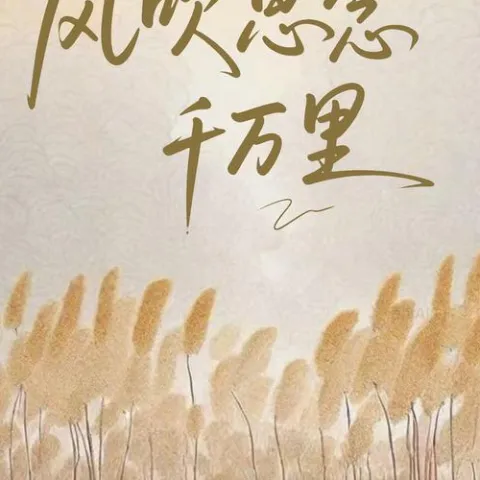 风吹思念
千万里